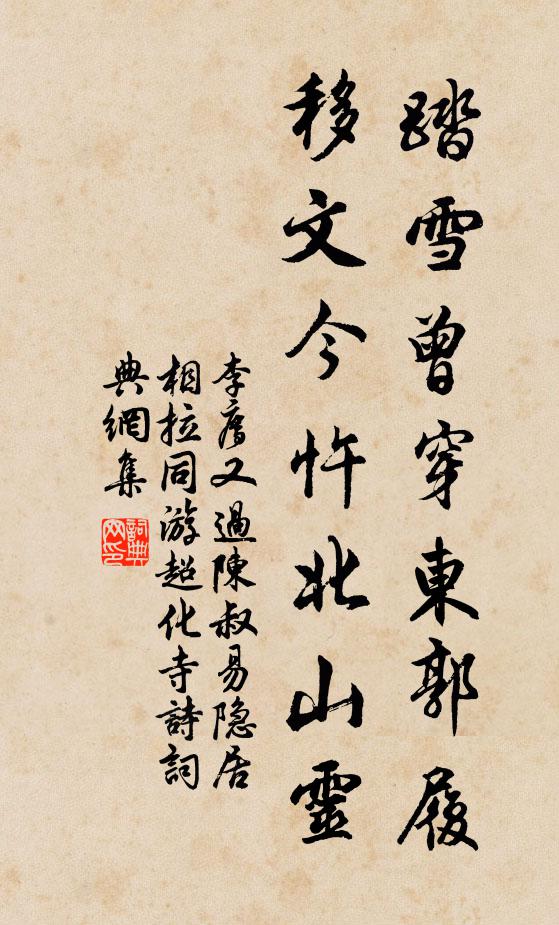 踏雪曾穿東郭履
移文今忤北山靈
李廌又過陳叔易隐居
相拉同游超化寺詩詞
典網集
詞典
网印